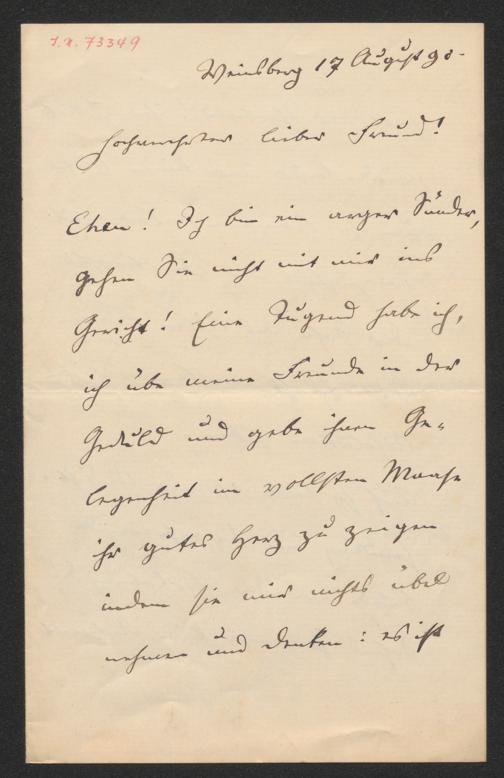 I.N. 73349
Weinsberg 17 August 90.
Hochverehrter lieber Freund!
Eheu! Ich bin ein arger Sünder,
gehen Sie nicht mit mir ins
Gericht! Eine Tugend habe ich,
ich übe meine Freunde in der
Geduld und gebe ihnen Ge-
legenheit im vollsten Maase
ihr gutes Herz zu zeigen
indem sie mir nichts übel
nehmen und denken: es ist